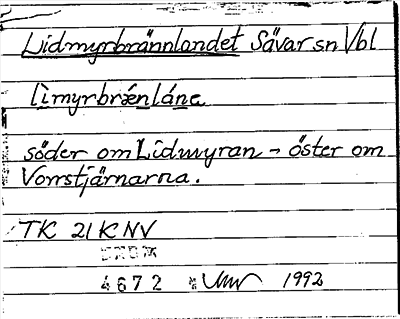 Lidmyrbrännlandet Sävar sn Vbl
lìmyrbrǽnláne
söder om Lidmyran - öster om
Vorrstjärnarna.
TK 21K NV
4672 1992